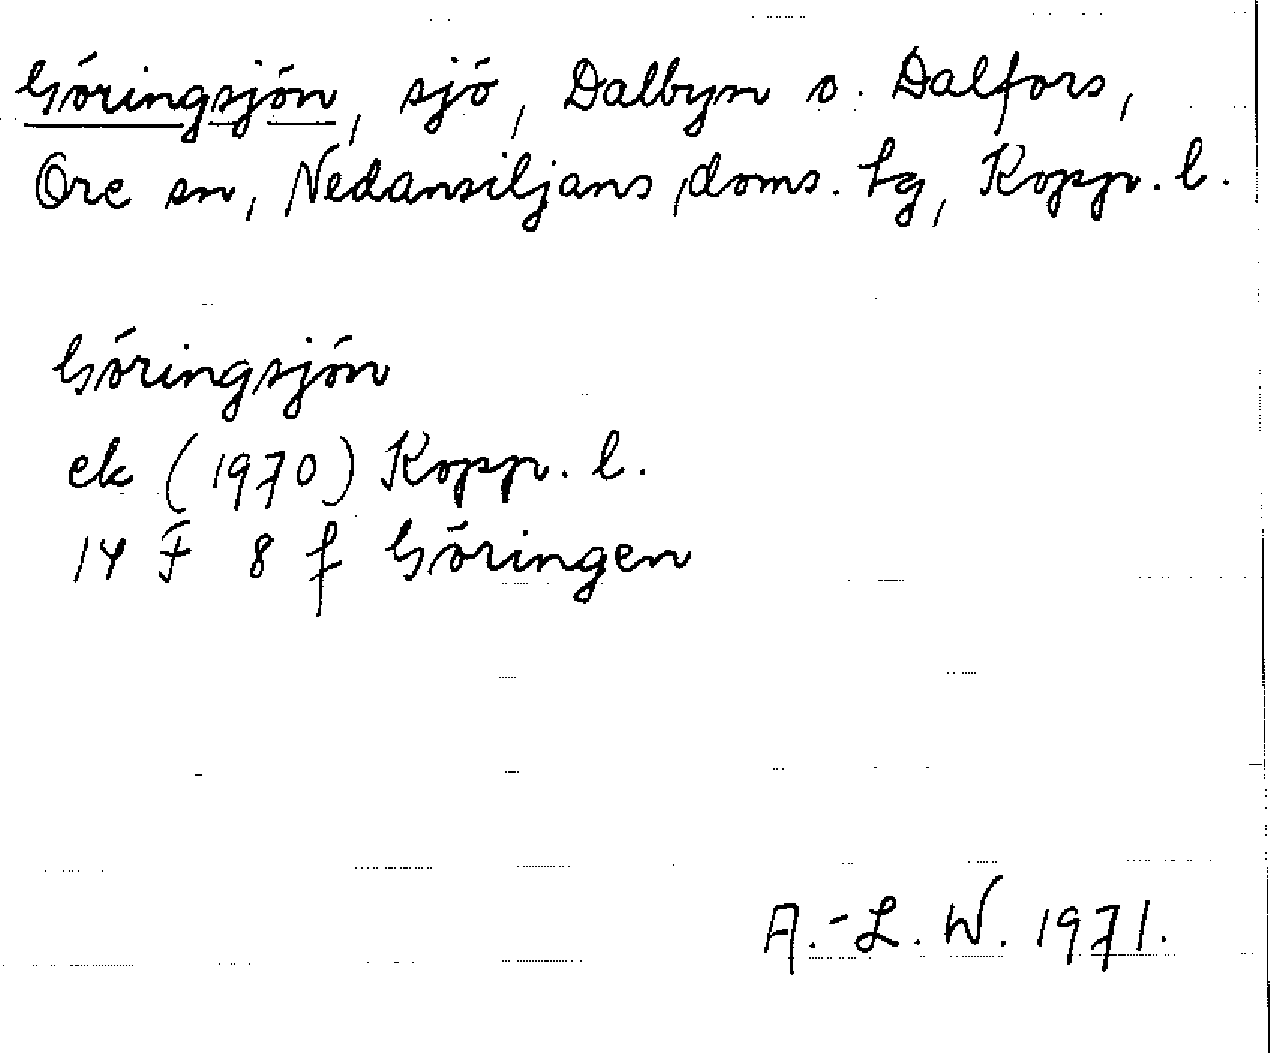 Göringsjön, sjö, Dalbyn o. Dalfors,
Ore sn, Nedansiljans doms. tg, Kopp. l.
Göringsjön
ek (1970) Kopp. l.
14 F 8 f Göringen
A.-L. W. 1971.